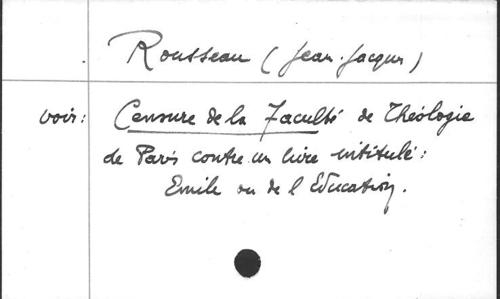 Rousseau (Jean-Jacques)
voir: Censure de la Faculté de Théologie
de Paris contre un livre intitulé:
Emile ou de l'Education.